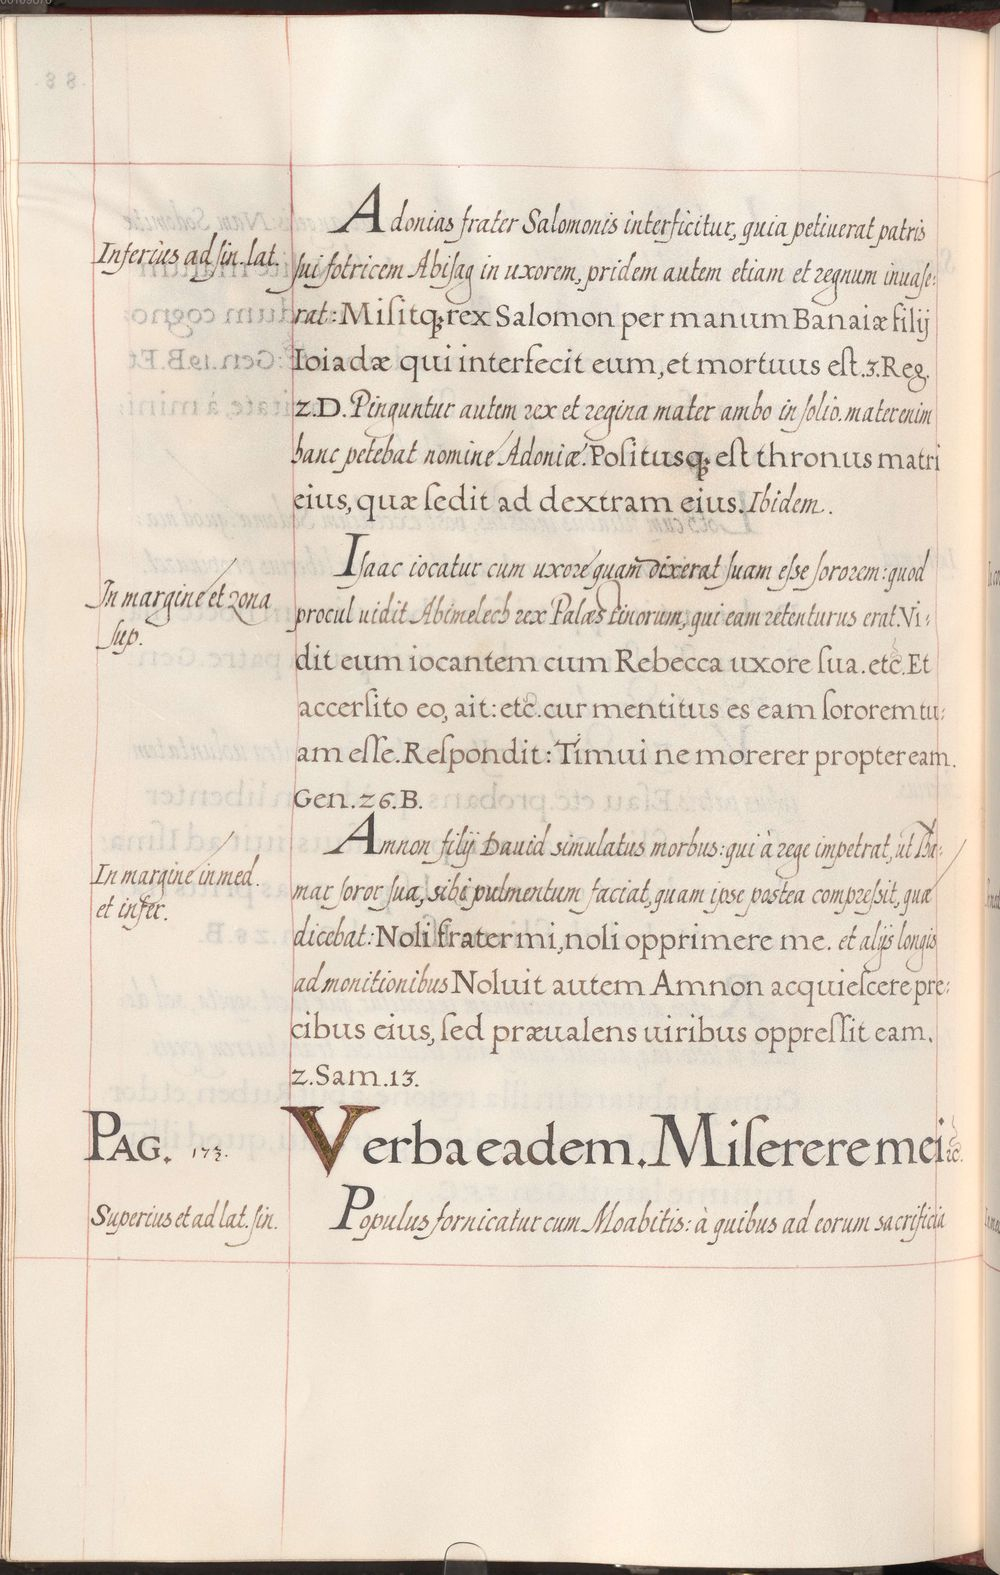 Adonias frater Salomonis interficitur, quia petiuerat patris
Inferiùs ad ſin. lat.
ſui fotricem Abiſag in uxorem, pridem autem etiam et regnum inuaſe:
rat: Miſitq; rex Salomon per manum Banaiæ filij
Ioiadæ qui interfecit eum, et mortuus eſt. 3. Reg.
2. D. Pinguntur autem rex et regina mater ambo in ſolio. mater enim
hanc petebat nomine Adoniæ. Poſitusq; eſt thronus matri
eius, quæ ſedit ad dextram eius. Ibidem.
Iſaac iocatur cum uxore quam dixerat ſuam eſſe ſororem: quod
In margine et zona
ſup.
procul uidit Abimelech rex Palæstinorum, qui eam retenturus erat. Vi:
dit eum iocantem cum Rebecca uxore ſua. etc. Et
accerſito eo, ait: etc. cur mentitus es eam ſororem tu:
am eſſe. Reſpondit: Timui ne morerer propter eam.
Gen. 26. B.
Amnon filij Dauid simulatus morbus: qui à rege impetrat, ut Tha:
In margine in med.
et infer.
mar ſoror ſua, sibi pulmentum faciat, quam ipse postea compreſsit, quæ
dicebat: Noli frater mi, noli opprimere me. et alijs longis
admonitionibus Noluit autem Amnon acquieſcere pre:
cibus eius, ſed præualens uiribus oppreſſit eam.
2. Sam. 13.
PAG. 172.
Verba eadem. Miſerere mei etc.
Superius et ad lat. ſin.
Populus fornicatur cum Moabitis: à quibus ad eorum sacrificia